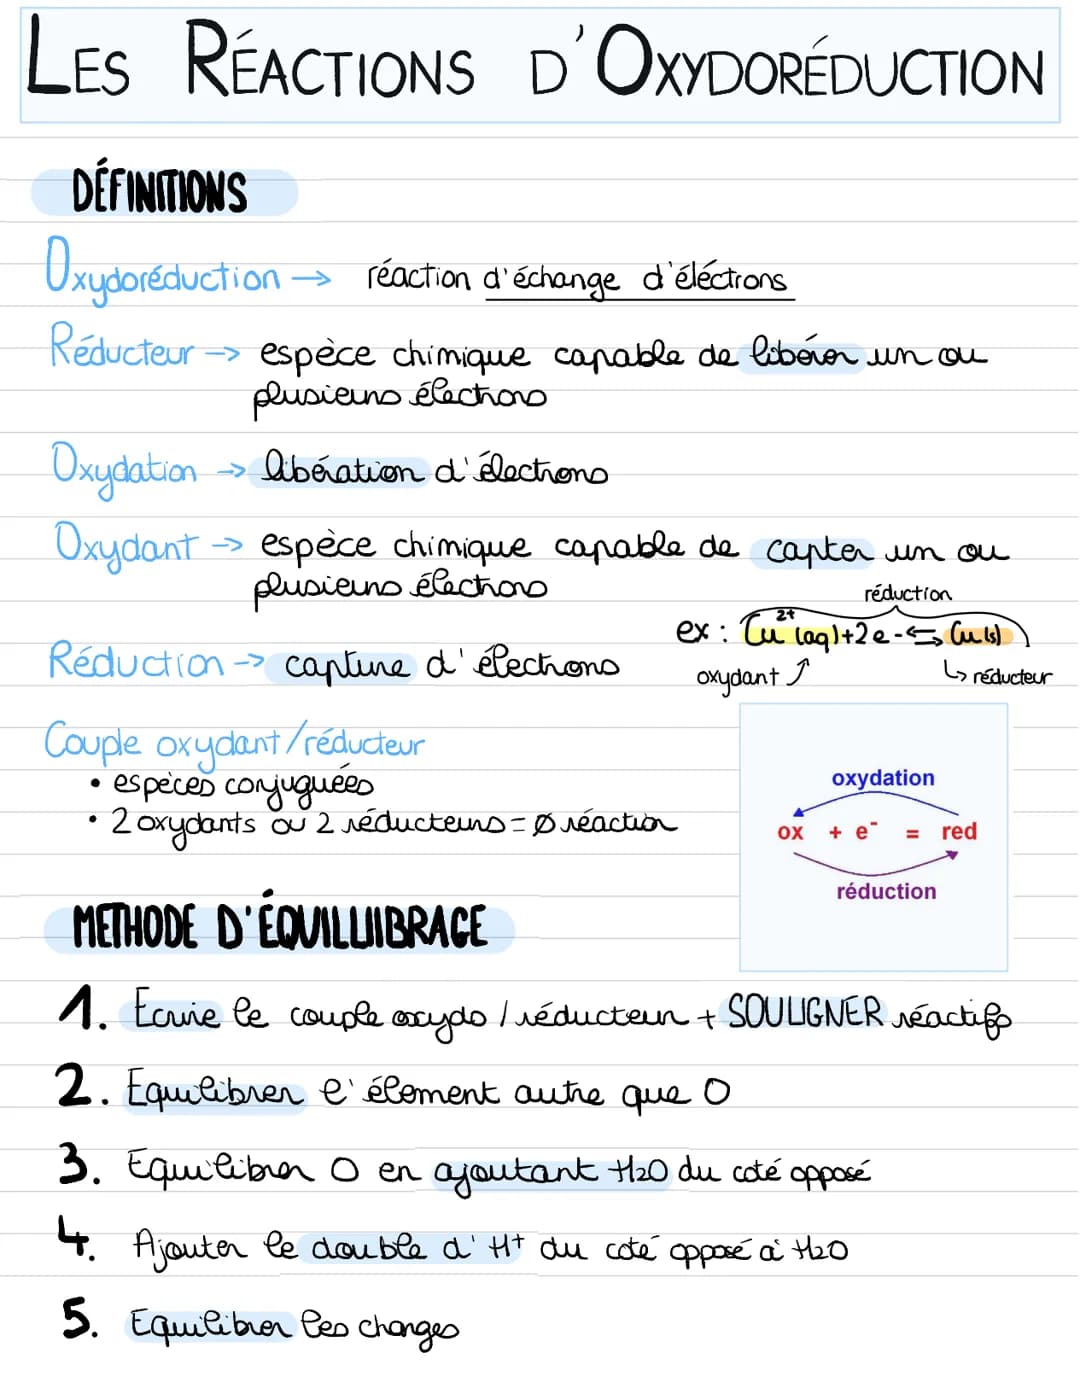 LES RÉACTIONS D'OXYDORÉDUCTION
DÉFINITIONS
Oxydoréduction → réaction d'échange d'éléctrons
Réducteur → espèce chimique capable de libérer un ou
plusieurs électrons
Oxydation → libération d'électrons
Oxydant → espèce chimique capable de capter un ou
plusieurs électrons
réduction
ex : Cu²⁺(aq)+2e-⇆Cu(s)
Réduction → capture d'électrons
oxydant
↳ réducteur
Couple oxydant/réducteur
• espèces conjuguées
• 2 oxydants ou 2 réducteurs = Ø réaction
oxydation
ox + e⁻ = red
réduction
METHODE D'ÉQUILLIIBRAGE
1. Ecrire le couple oxydo / réducteur + SOULIGNER réactifs
2. Equilibrer l'élement autre que O
3. Equilibrer O en ajoutant H2O du coté opposé
4. Ajouter le double d'H+ du coté opposé à H2O
5. Equilibrer les charges